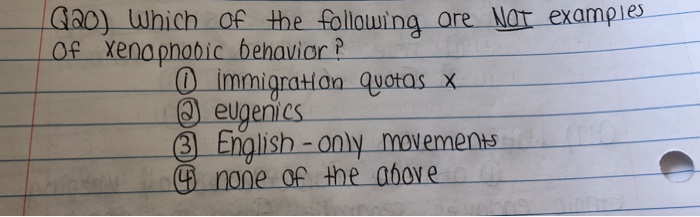 Q20) Which of the following are NOT examples
of xenophobic behavior?
① immigration quotas x
② eugenics
③ English-only movements
④ none of the above